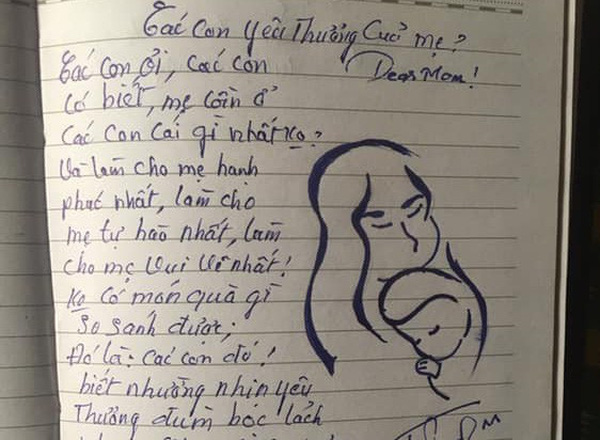 Các Con yêu Thương Của mẹ?
Các Con ơi, các con
Dear Mom!
Có biết, mẹ cần ở
Các Con Cái gì nhất Ko?
Và làm cho mẹ hanh
phúc nhất, làm cho
mẹ tự hào nhất, làm
Cho mẹ Vui Vẻ nhất!
Ko Có món quà gì
So sánh được;
Đó là: Các con đó!
biết nhường nhịn yêu
Thưởng đùm bóc lách